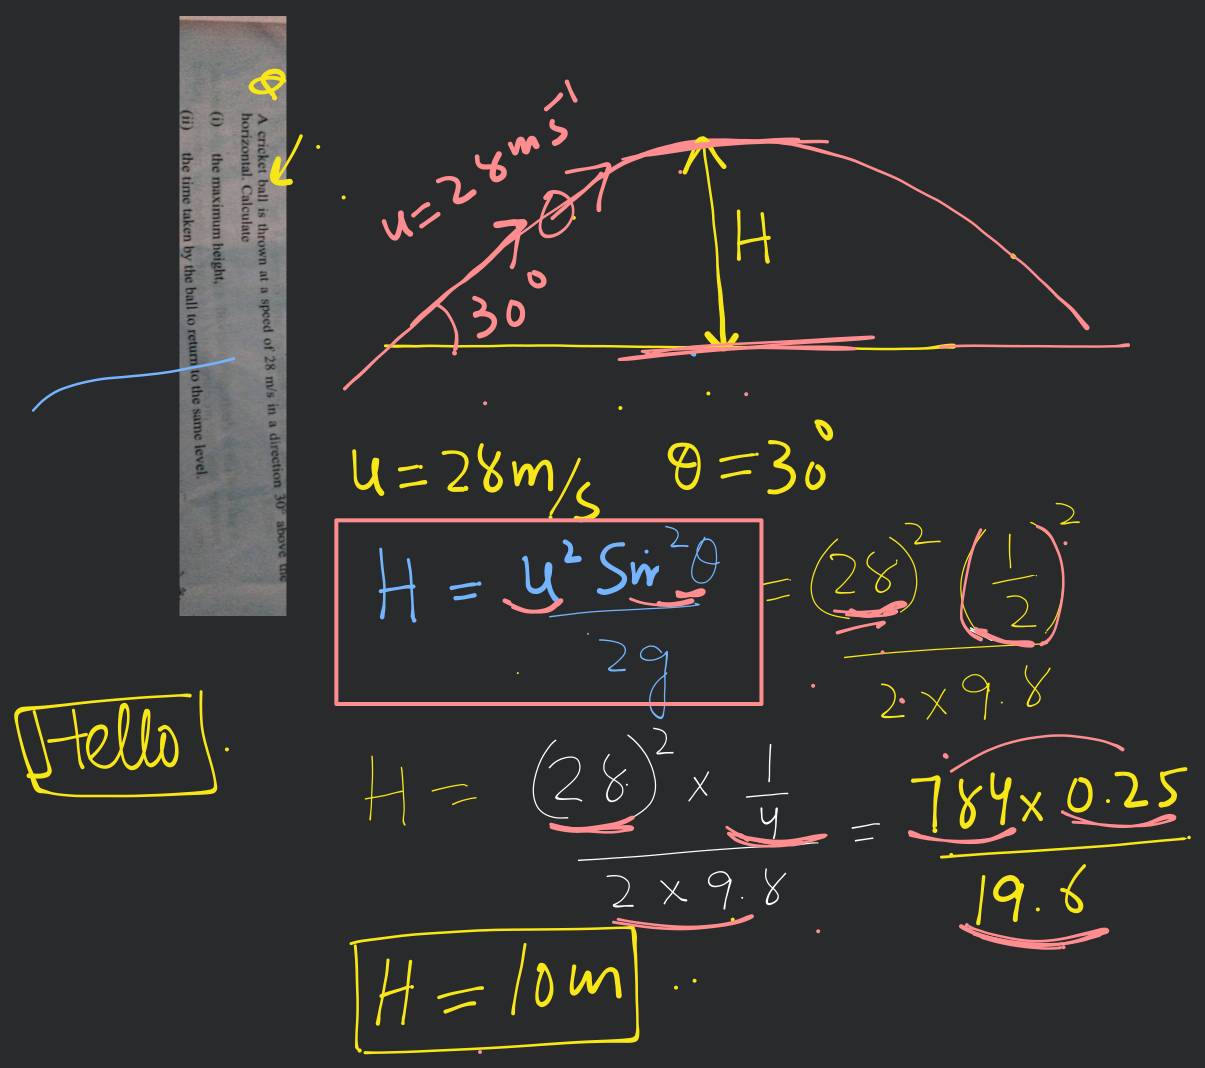 Q
A cricket ball is thrown at a speed of 28 m/s in a direction 30° above the
horizontal. Calculate
(i) the maximum height,
(ii) the time taken by the ball to return to the same level.
u=28ms⁻¹
θ
30°
H
u=28m/s θ=30°
H = u² Sin²θ / 2g = (28)² (1/2)² / 2×9.8
Hello
H = (28)² × 1/4 / 2×9.8 = 784×0.25 / 19.6
H = 10m